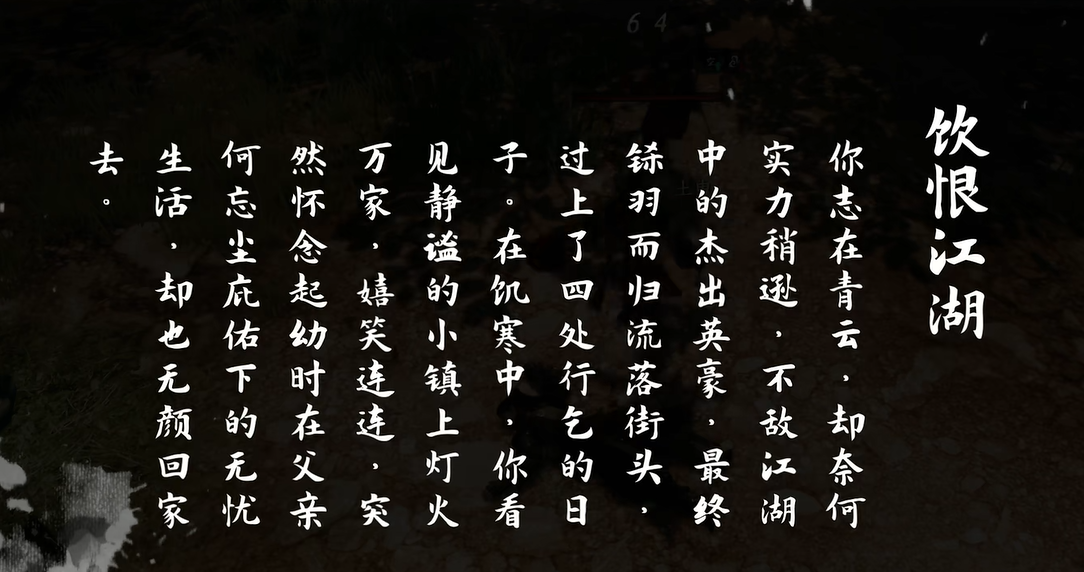 饮恨江湖
你志在青云，却奈何
实力稍逊，不敌江湖
中的杰出英豪，最终
铩羽而归流落街头，
过上了四处行乞的日
子。在饥寒中，你看
见静谧的小镇上灯火
万家，嬉笑连连，突
然怀念起幼时在父亲
何忘尘庇佑下的无忧
生活，却也无颜回家
去。
64